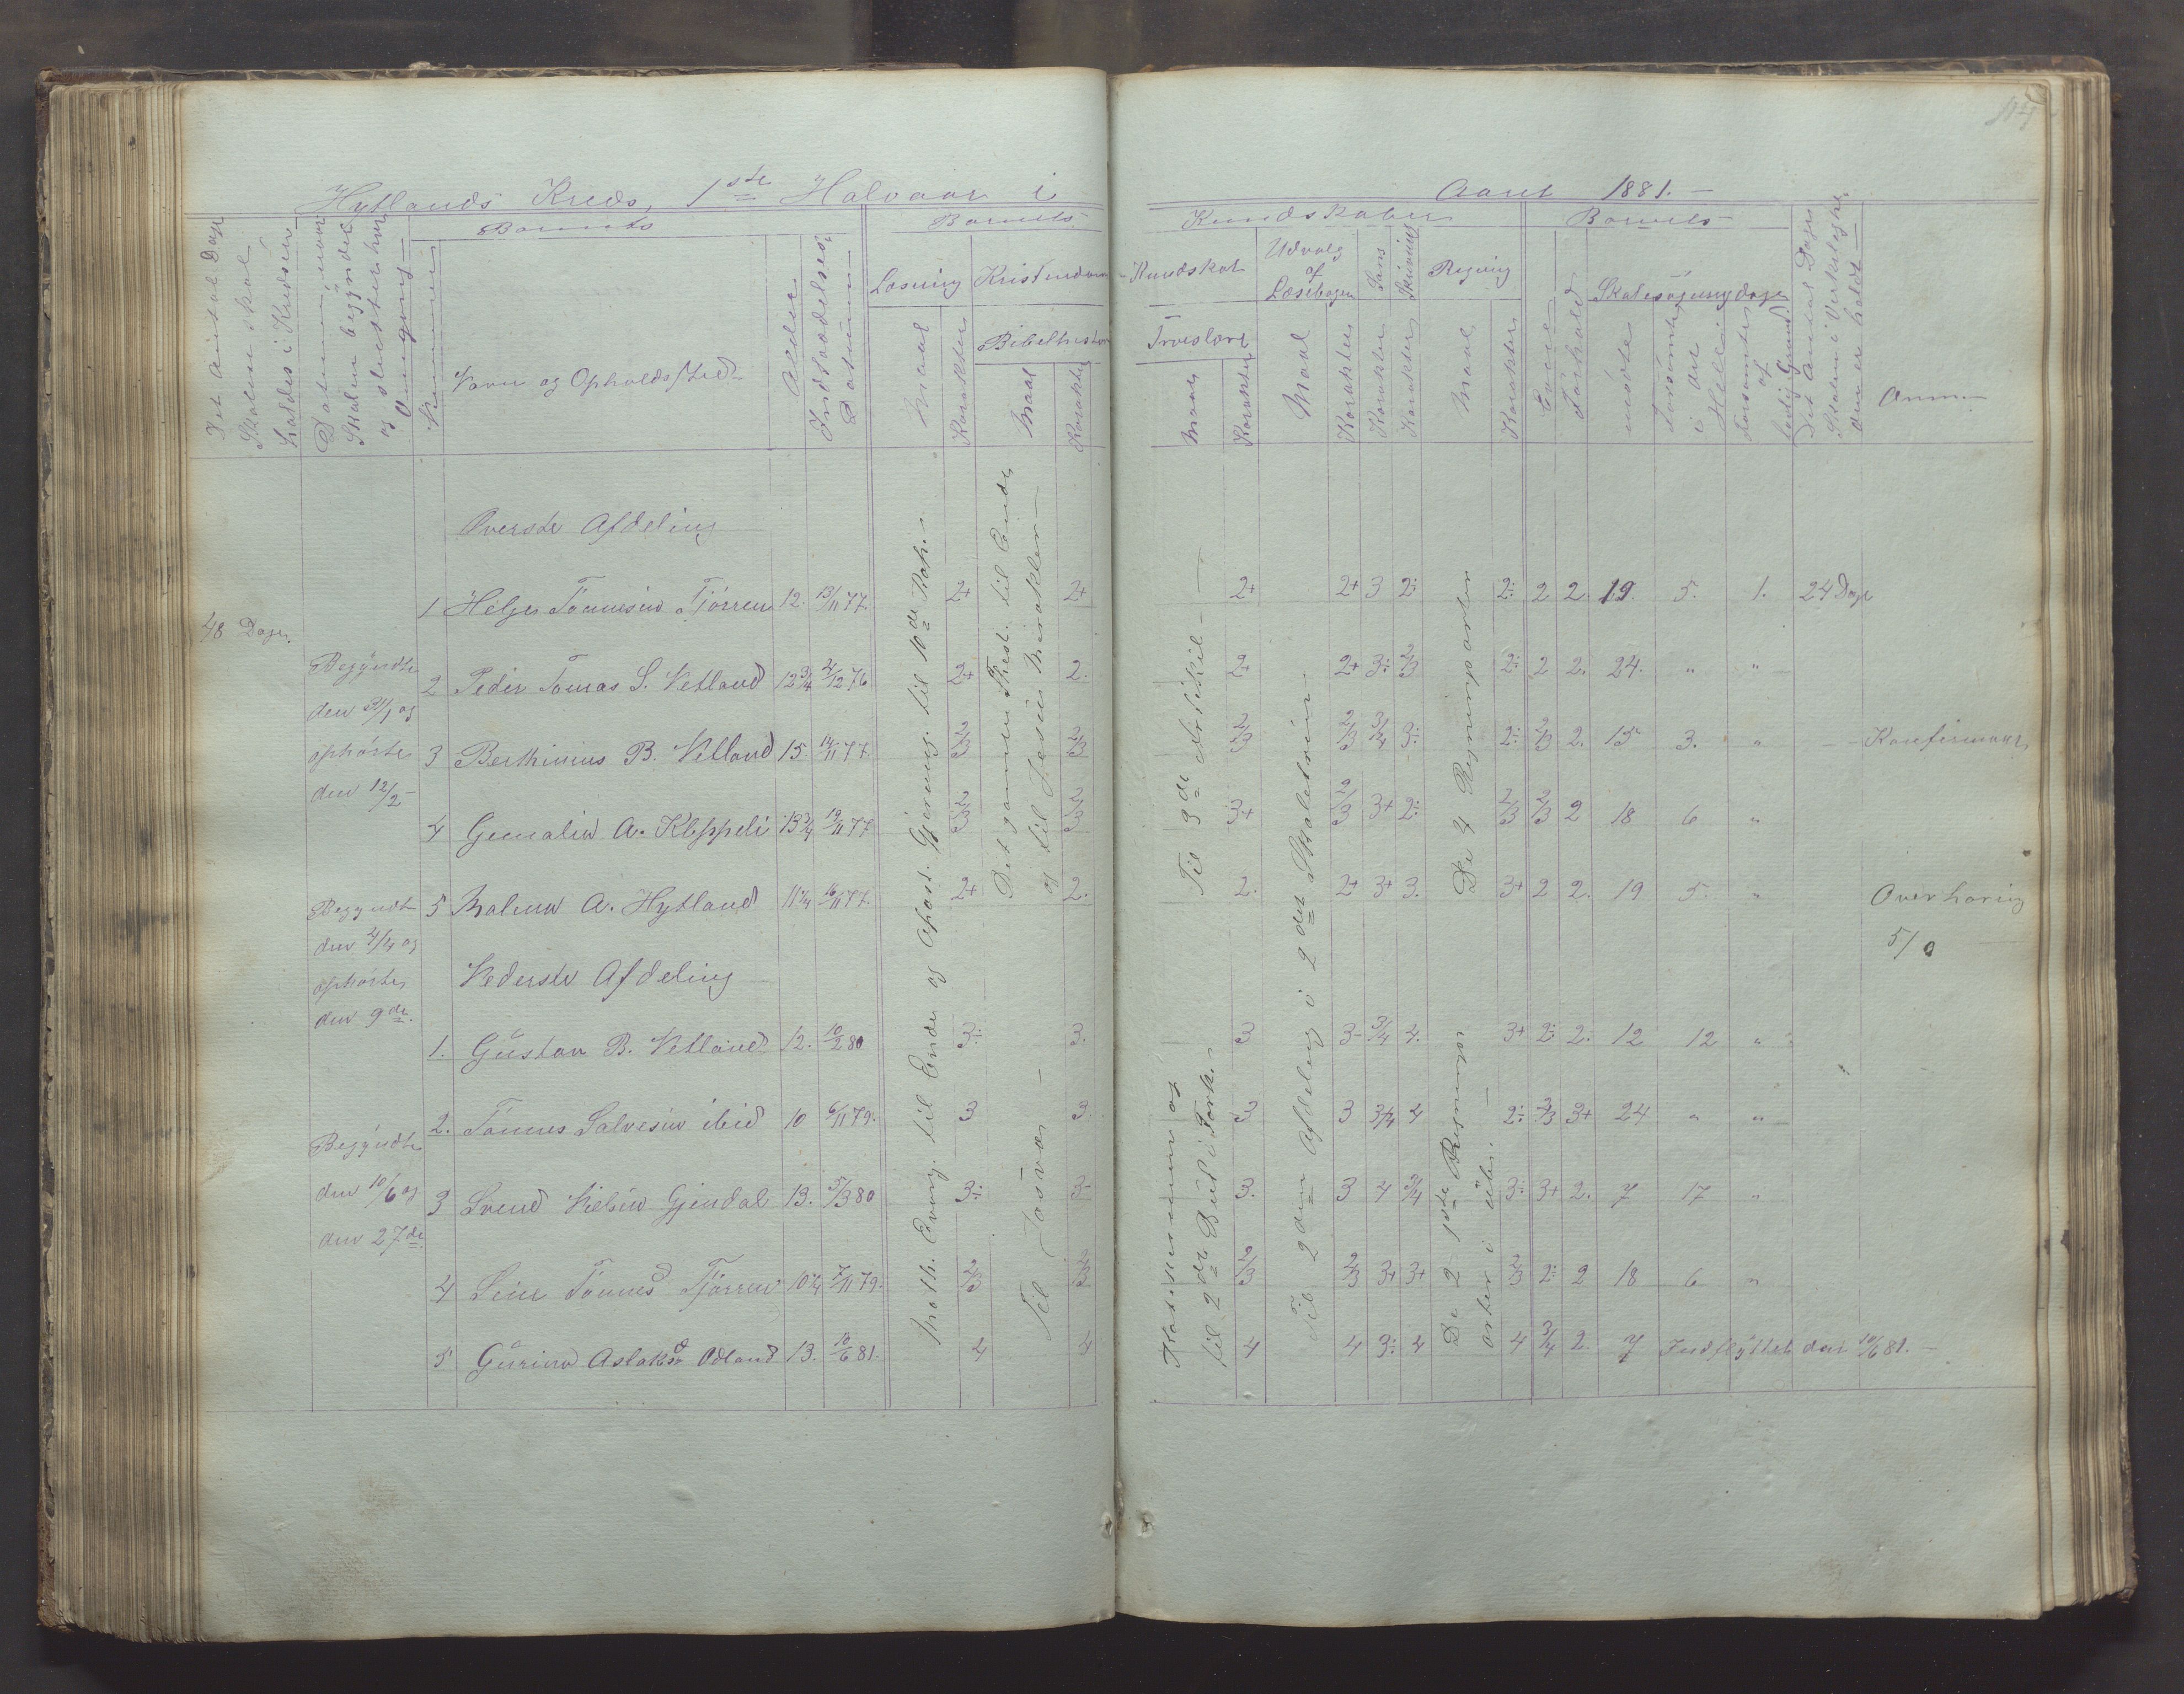 Hytlands Kreds, 1ste Halvaar i Aaret 1881.
Det Antal Dage
Skolen skal
holdes i Kredsen
Datum, naar
Skolen begyndte
og sluttet hver
Omgang
Nummer
Barnets
Navn og Opholdssted
Alder
Indtrædelses
Datum
Barnets
Læsning
Maal
Karakter
Kristendom
Bibelhistorie
Maal
Karakter
Kundskaber
Kundskab
Troeslære
Maal
Karakter
Udvalg
af
Læsebogen
Maal
Karakter
Sang
Karakter
Skrivning
Karakter
Regning
Maal
Karakter
Barnets
Evne
Forhold
Skolesøgningsdage
mødte
Forsømte
i det
Hele
Forsømte
af
lovlig Grund
Det Antal Dage
Skolen i Virkelighe
den er holdt
Anm.
Øverste Afdeling
1 Helge Tønnesen Tjørren 12. 13/11 77. 2+ 2+ 2+ 2+ 3 2÷ 2÷ 2 2. 19. 5. 1. 24 Dage
48 Dage.
2 Peder Tomas S. Vetland 12 3/4 4/12 76 2+ 2. 2+ 2+ 3÷ 2/3 2÷ 2 2. 24. " "
3 Berthinius B. Vetland 15. 14/11 77. 2/3 2/3 2/3 2/3 3/4 3÷ 2÷ 2/3 2. 15 3. " Konfirmant
4 Gemalie A. Kleppeli 13 3/4 19/11 77 2/3 2/3 3+ 2/3 3+ 2÷ 2/3 2/3 2 18 6 "
5 Malene A. Hytland 11 1/4 16/11 77. 2+ 2. 2. 2+ 3+ 3. 3+ 2 2. 19 5. " Overhøring
5/0
Begyndte
den 21/1 og
ophørte
den 12/2
Begyndte
den 4/4 og
ophørte
den 9de.
Begyndte
den 10/6 og
den 27de
Nederste Afdeling
1. Gustav B. Vetland 12. 10/2 80 3÷ 3. 3 3- 3/4 4. 3+ 2÷ 2. 12 12 "
2. Tønnes Salvesen ibid 10 6/11 79. 3 3. 3 3 3/4 4 2÷ 2/3 3+ 24 " "
3 Svend Nielsen Gjendal 13. 5/3 80 3÷ 3- 3. 3 4 3/4 3÷ 3+ 2. 7 17 "
4 Sine Tønnesd Tjørren 10 1/4 7/11 79. 2/3 2/3 2/3 2/3 3+ 3+ 2/3 2÷ 2 18 6 "
5 Gurine Aslaksd Odland 13. 10/6 81. 4 4 4 4 3÷ 4 4 3/4 2. 7 Indflyttet den 10/6 81.
Math. Evang. til Ende og Apost. Gjerning. til 10de Kap.
Det gamle Test. til Ende
og til Jesu Mirakler
Til Josva
Til 3de Artikil
Katekismen og
til 2de Bud i Fork.
Til 2den Afdeling i 2det Skoletrin.
De 4 Regningsarter
De 2 1ste Regnings
arter i ube.